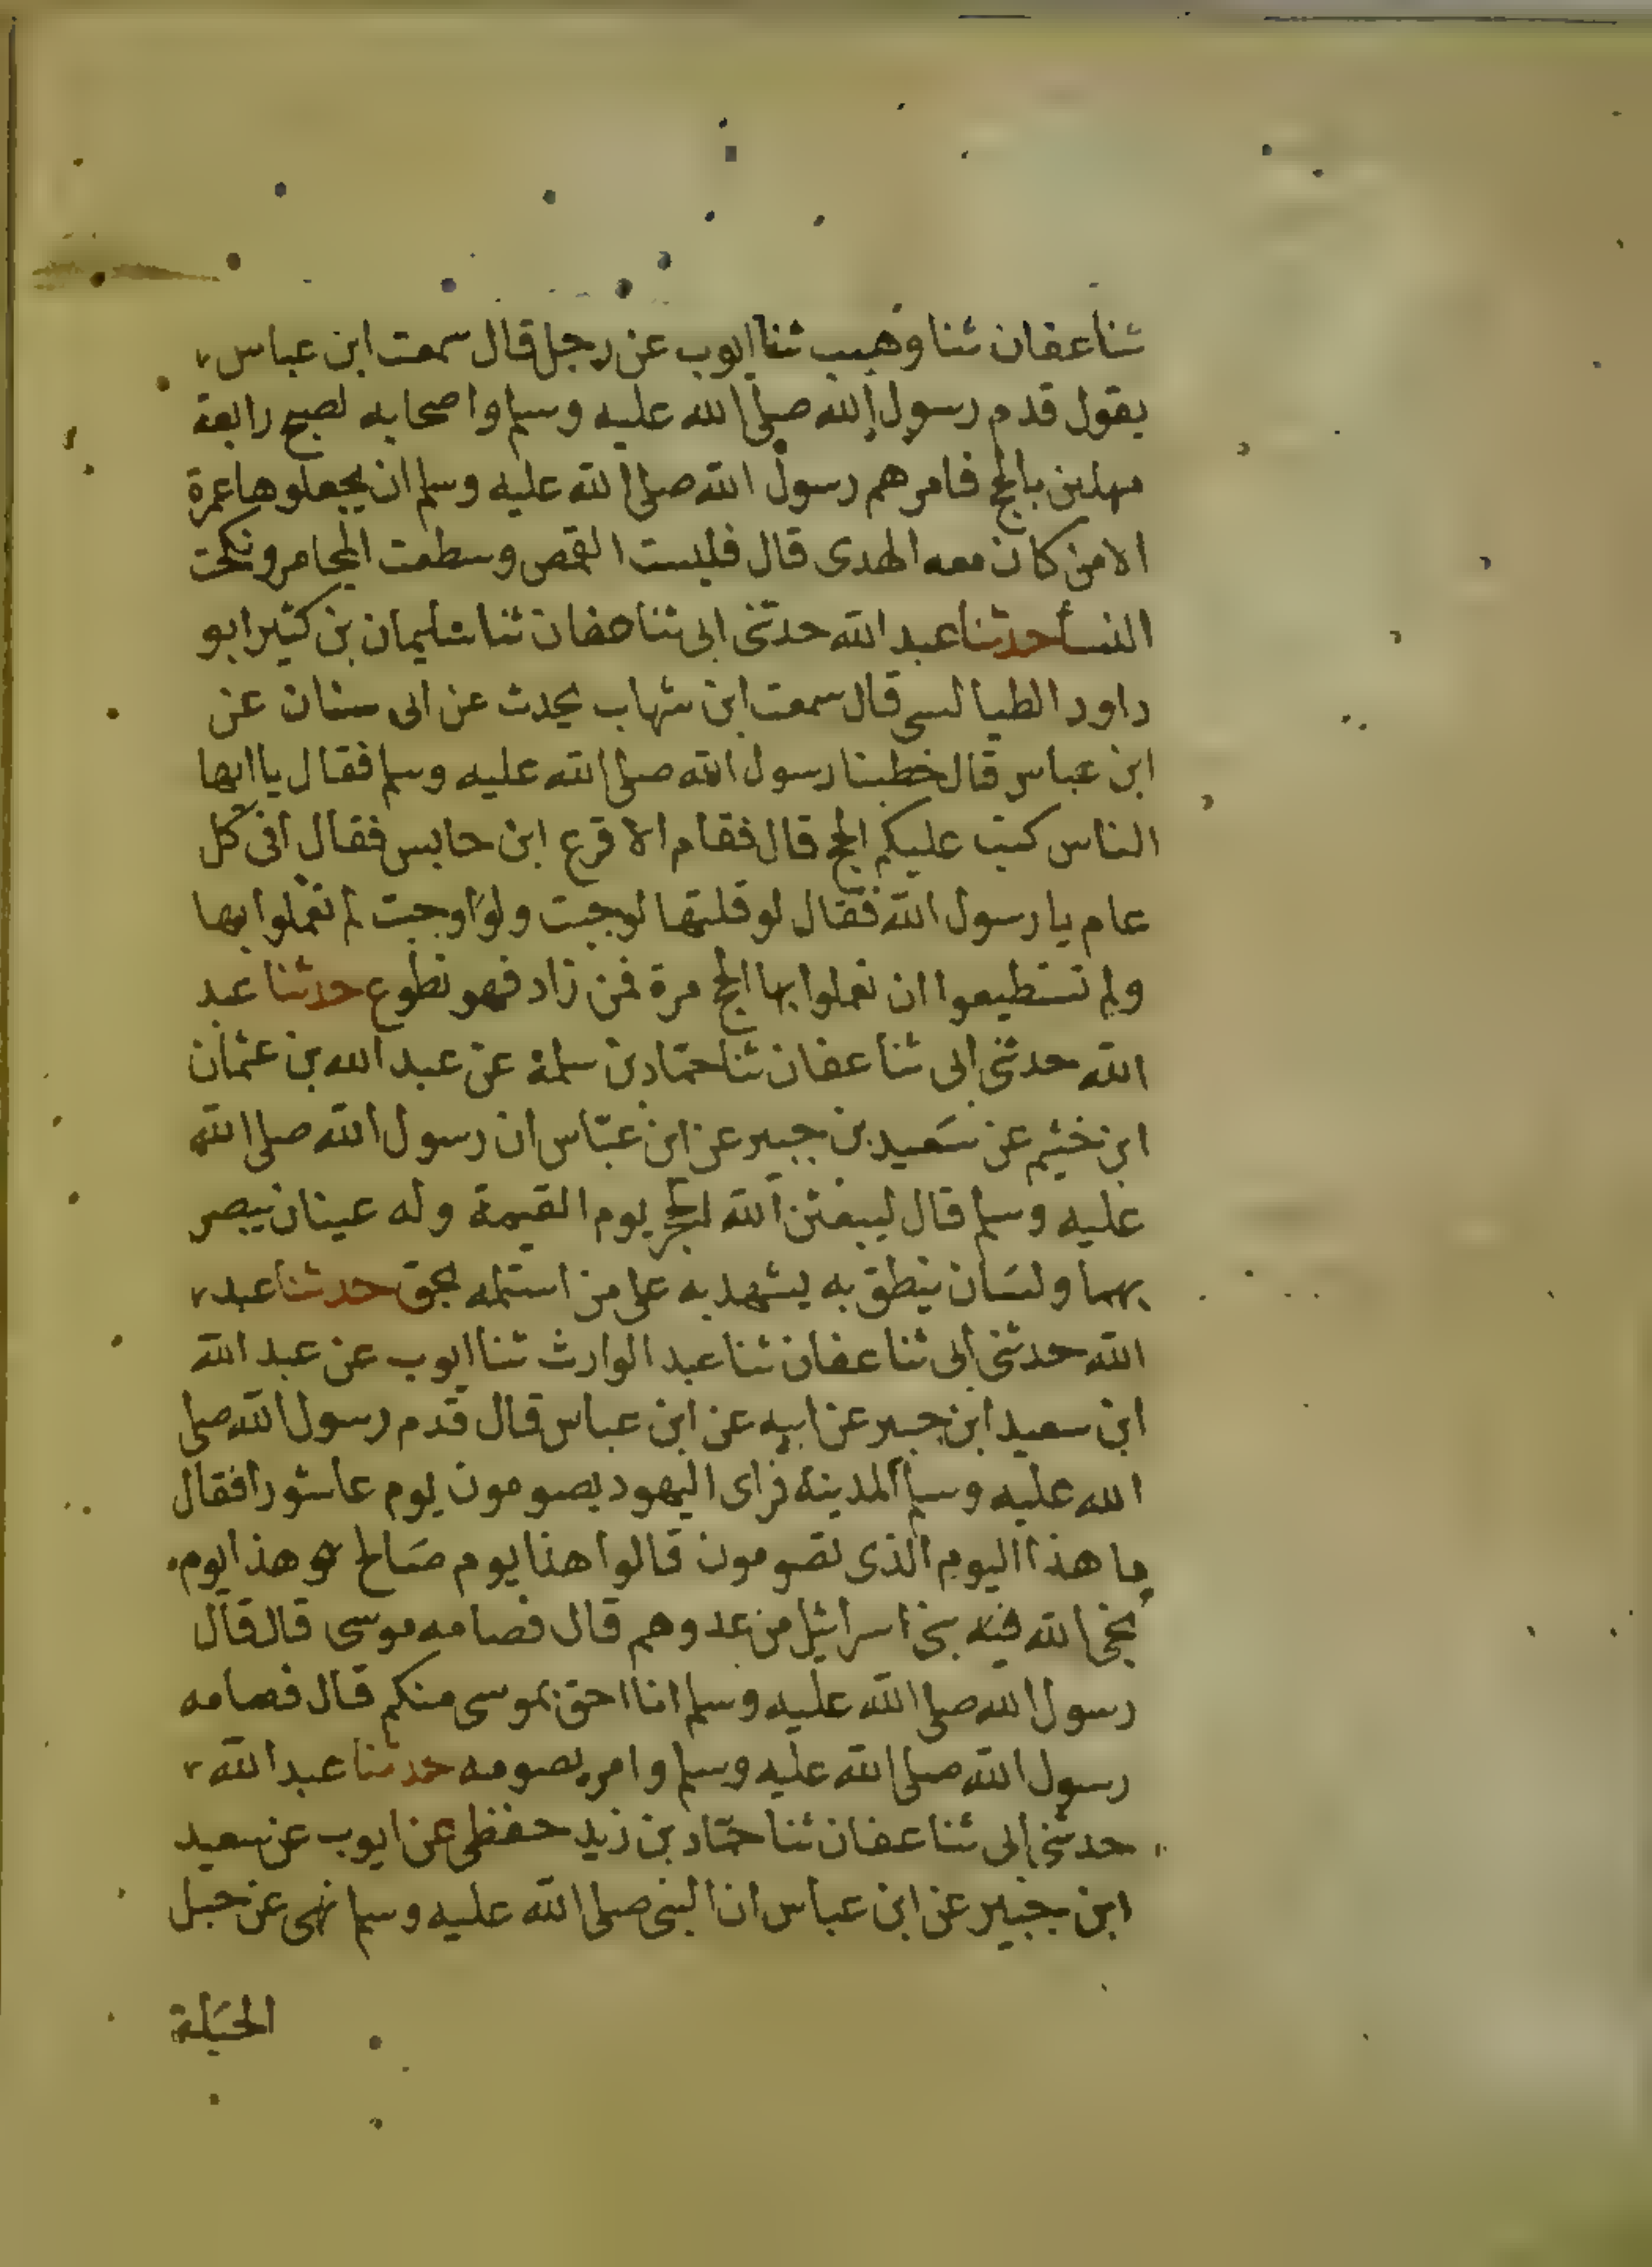 ثنا عفان ثنا وهيب ثنا ايوب عن رجل قال سمعت ابن عباس
يقول قدم رسول الله صلى الله عليه وسلم واصحابه لصبح رابعة
مهلين بالحج فامرهم رسول الله صلى الله عليه وسلم ان يجعلوها عمرة
الا من كان معه الهدى قال فلبست القمص وسطعت المجامر ونكحت
النسأ حدثنا عبد الله حدثنى ابى ثنا عفان ثنا سليمان بن كثير ابو
داود الطيالسى قال سمعت ابن شهاب يحدث عن ابى سنان عن
ابن عباس قال خطبنا رسول الله صلى الله عليه وسلم فقال يا ايها
الناس كتب عليكم الحج قال فقام الاقرع ابن حابس فقال افى كل
عام يا رسول الله فقال لو قلتها لوجبت ولو اوجبت لم تعملوا بها
ولم تستطيعوا ان تعملوا بها الحج مرة فمن زاد فهو تطوع حدثنا عبد
الله حدثنى ابى ثنا عفان ثنا حماد بن سلمة عن عبد الله بن عثمان
ابن خثيم عن سعيد بن جبير عن ابن عباس ان رسول الله صلى الله
عليه وسلم قال ليبعثن الله الحجر يوم القيمة وله عينان يبصر
بهما ولسان ينطق به يشهد به على من استلمه بحق حدثنا عبد
الله حدثنى ابى ثنا عفان ثنا عبد الوارث ثنا ايوب عن عبد الله
ابن سعيد ابن جبير عن ابيه عن ابن عباس قال قدم رسول الله صلى
الله عليه وسلم المدينة فراى اليهود يصومون يوم عاشورا فقال
ما هذا اليوم الذى تصومون قالوا هذا يوم صالح هذا يوم
نجى الله فيه بنى اسرائيل من عدوهم قال فصامه موسى قال قال
رسول الله صلى الله عليه وسلم انا احق بموسى منكم قال فصامه
رسول الله صلى الله عليه وسلم وامر بصومه حدثنا عبد الله
حدثنى ابى ثنا عفان ثنا حماد بن زيد حفظى عن ايوب عن سعيد
ابن جبير عن ابن عباس ان النبى صلى الله عليه وسلم نهى عن حبل
الحبلة